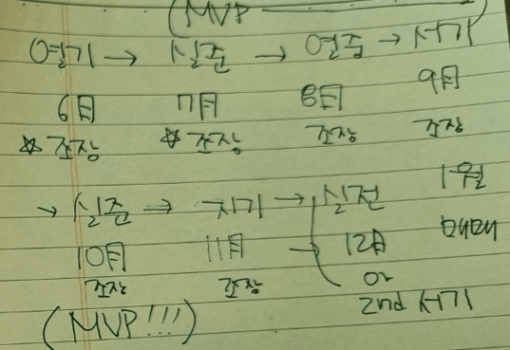 (MVP
열기 → 실준 → 열중 → 서기
6月 7月 8月 9月
☆ 조장 ☆ 조장 조장 조장
→ 실준 → 지기 → 실전 1월
10月 11月 → 12月 매매
조장 조장 or
(MVP!!!) 2nd 서기